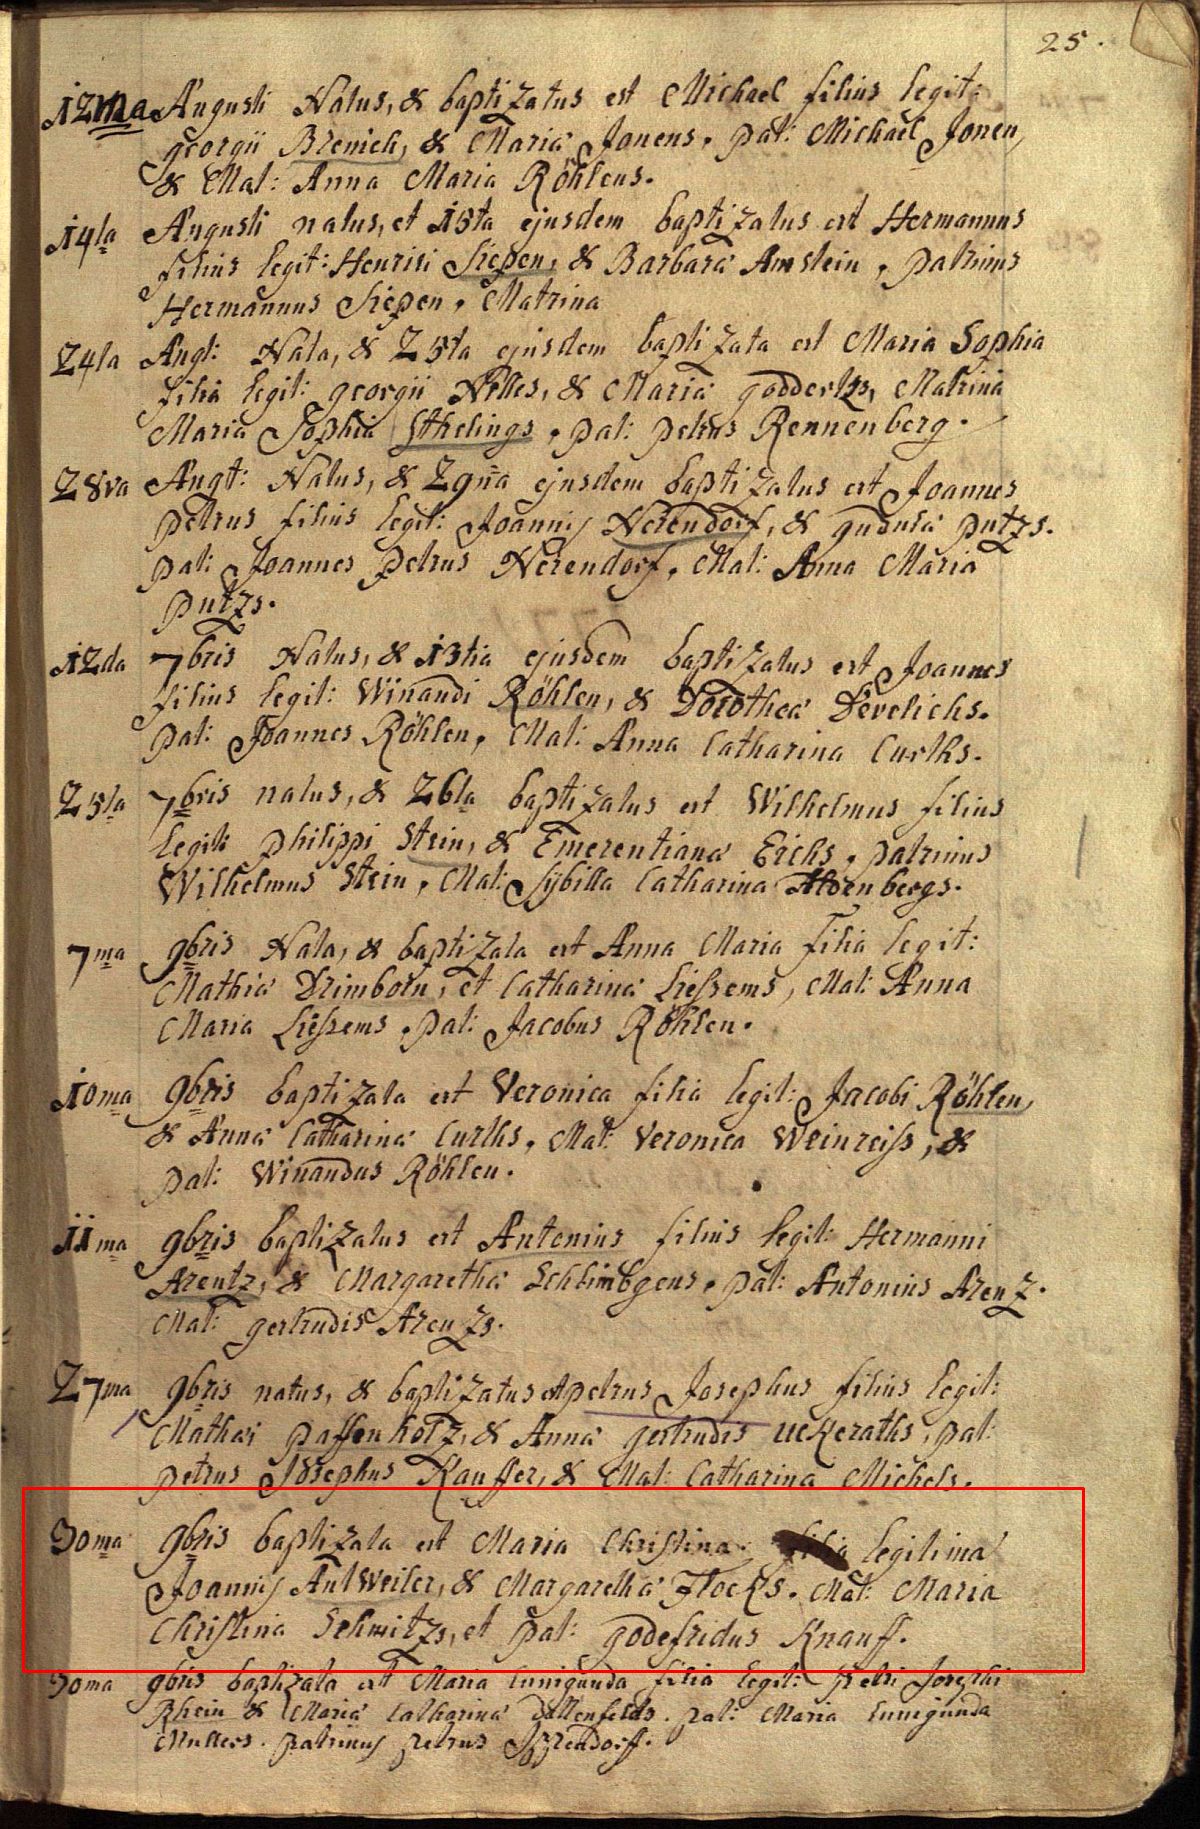 25.
12ma Augusti Natus, & baptizatus est Michael filius legit:
georgii Brenich, & Maria Jonens, pat: Michael Jonen,
& Mat: Anna Maria Röhlens.
14ta Augusti natus, et 15ta ejusdem baptizatus est Hermannus
filius legit: Henrici Siepen, & Barbara Amstein, patrinus
Hermannus Siepen, Matrina
24ta Augt: Nata, & 25ta ejusdem baptizata est Maria Sophia
filia legit: georgii Nilles, & Maria godderts, Matrina
Maria Sophia Sthelings, pat: petrus Rennenberg.
28va Augt: Natus, & 29na ejusdem baptizatus est Joannes
petrus filius legit: Joannis Nerendorf, & gudula putzs.
pat: Joannes petrus Nerendorf, Mat: Anna Maria
putzs.
12da 7bris Natus, & 13tia ejusdem baptizatus est Joannes
filius legit: Winandi Röhlen, & Dorothea Derelichs.
pat: Joannes Röhlen, Mat: Anna Catharina Curths.
25ta 7bris natus, & 26ta baptizatus est Wilhelmus filius
legit: philippi Stein, & Emerentiana Erichs, patrinus
Wilhelmus Stein, Mat: Sybilla Catharina Aldenbergs.
7ma 9bris Nata, & baptizata est Anna Maria filia legit:
Mathia Drimborn, et Catharina Liessems, Mat: Anna
Maria Liessems, pat: Jacobus Röhlen.
10ma 9bris baptizata est Veronica filia legit: Jacobi Röhlen,
& Anna Catharina Curths, Mat: Veronica Weinreiss, &
pat: Winandus Röhlen.
11ma 9bris baptizatus est Antonius filius legit: Hermanni
Arentz, & Margaretha Schlimbgens, pat: Antonius Arenz.
Mat: gertrudis Arenzs.
27ma 9bris natus, & baptizatus est petrus Josephus filius legit:
Mathai paffenholz, & Anna gertrudis uckeraths, pat:
petrus Josephus Kauffer, & Mat: Catharina Michels.
30ma 9bris baptizata est Maria Christina filia legitima
Joannis Antweiler, & Margaretha Flocks. Mat: Maria
Christina Schmitzs, et pat: godefridus Knauff.
30ma 9bris baptizata est Maria Cunigunda filia legit: petri Josephi
Rhein & Maria Catharina Dollenfelds. pat: Maria Cunigunda
Mullers. patrinus petrus Ippendorff.